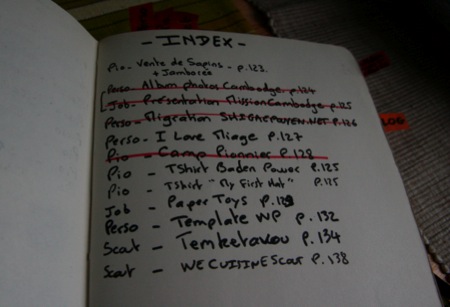 - INDEX -
Pio - Vente de Sapins - p.123
+ Jamboree
Perso - Album photos Cambodge - p.124
Job - Présentation Mission Cambodge - p.125
Perso - Migration - p.126
Perso - I Love Mage P.127
Pio - Camp Pionnier P.128
Pio - TShirt Baden Power P.125
Pio - TShirt "My First Hat" P.125
Job - Paper Toys P.129
Perso - Template WP P. 132
Scout - P. 134
Scout - WECUISINESCOUT P. 138
LOG